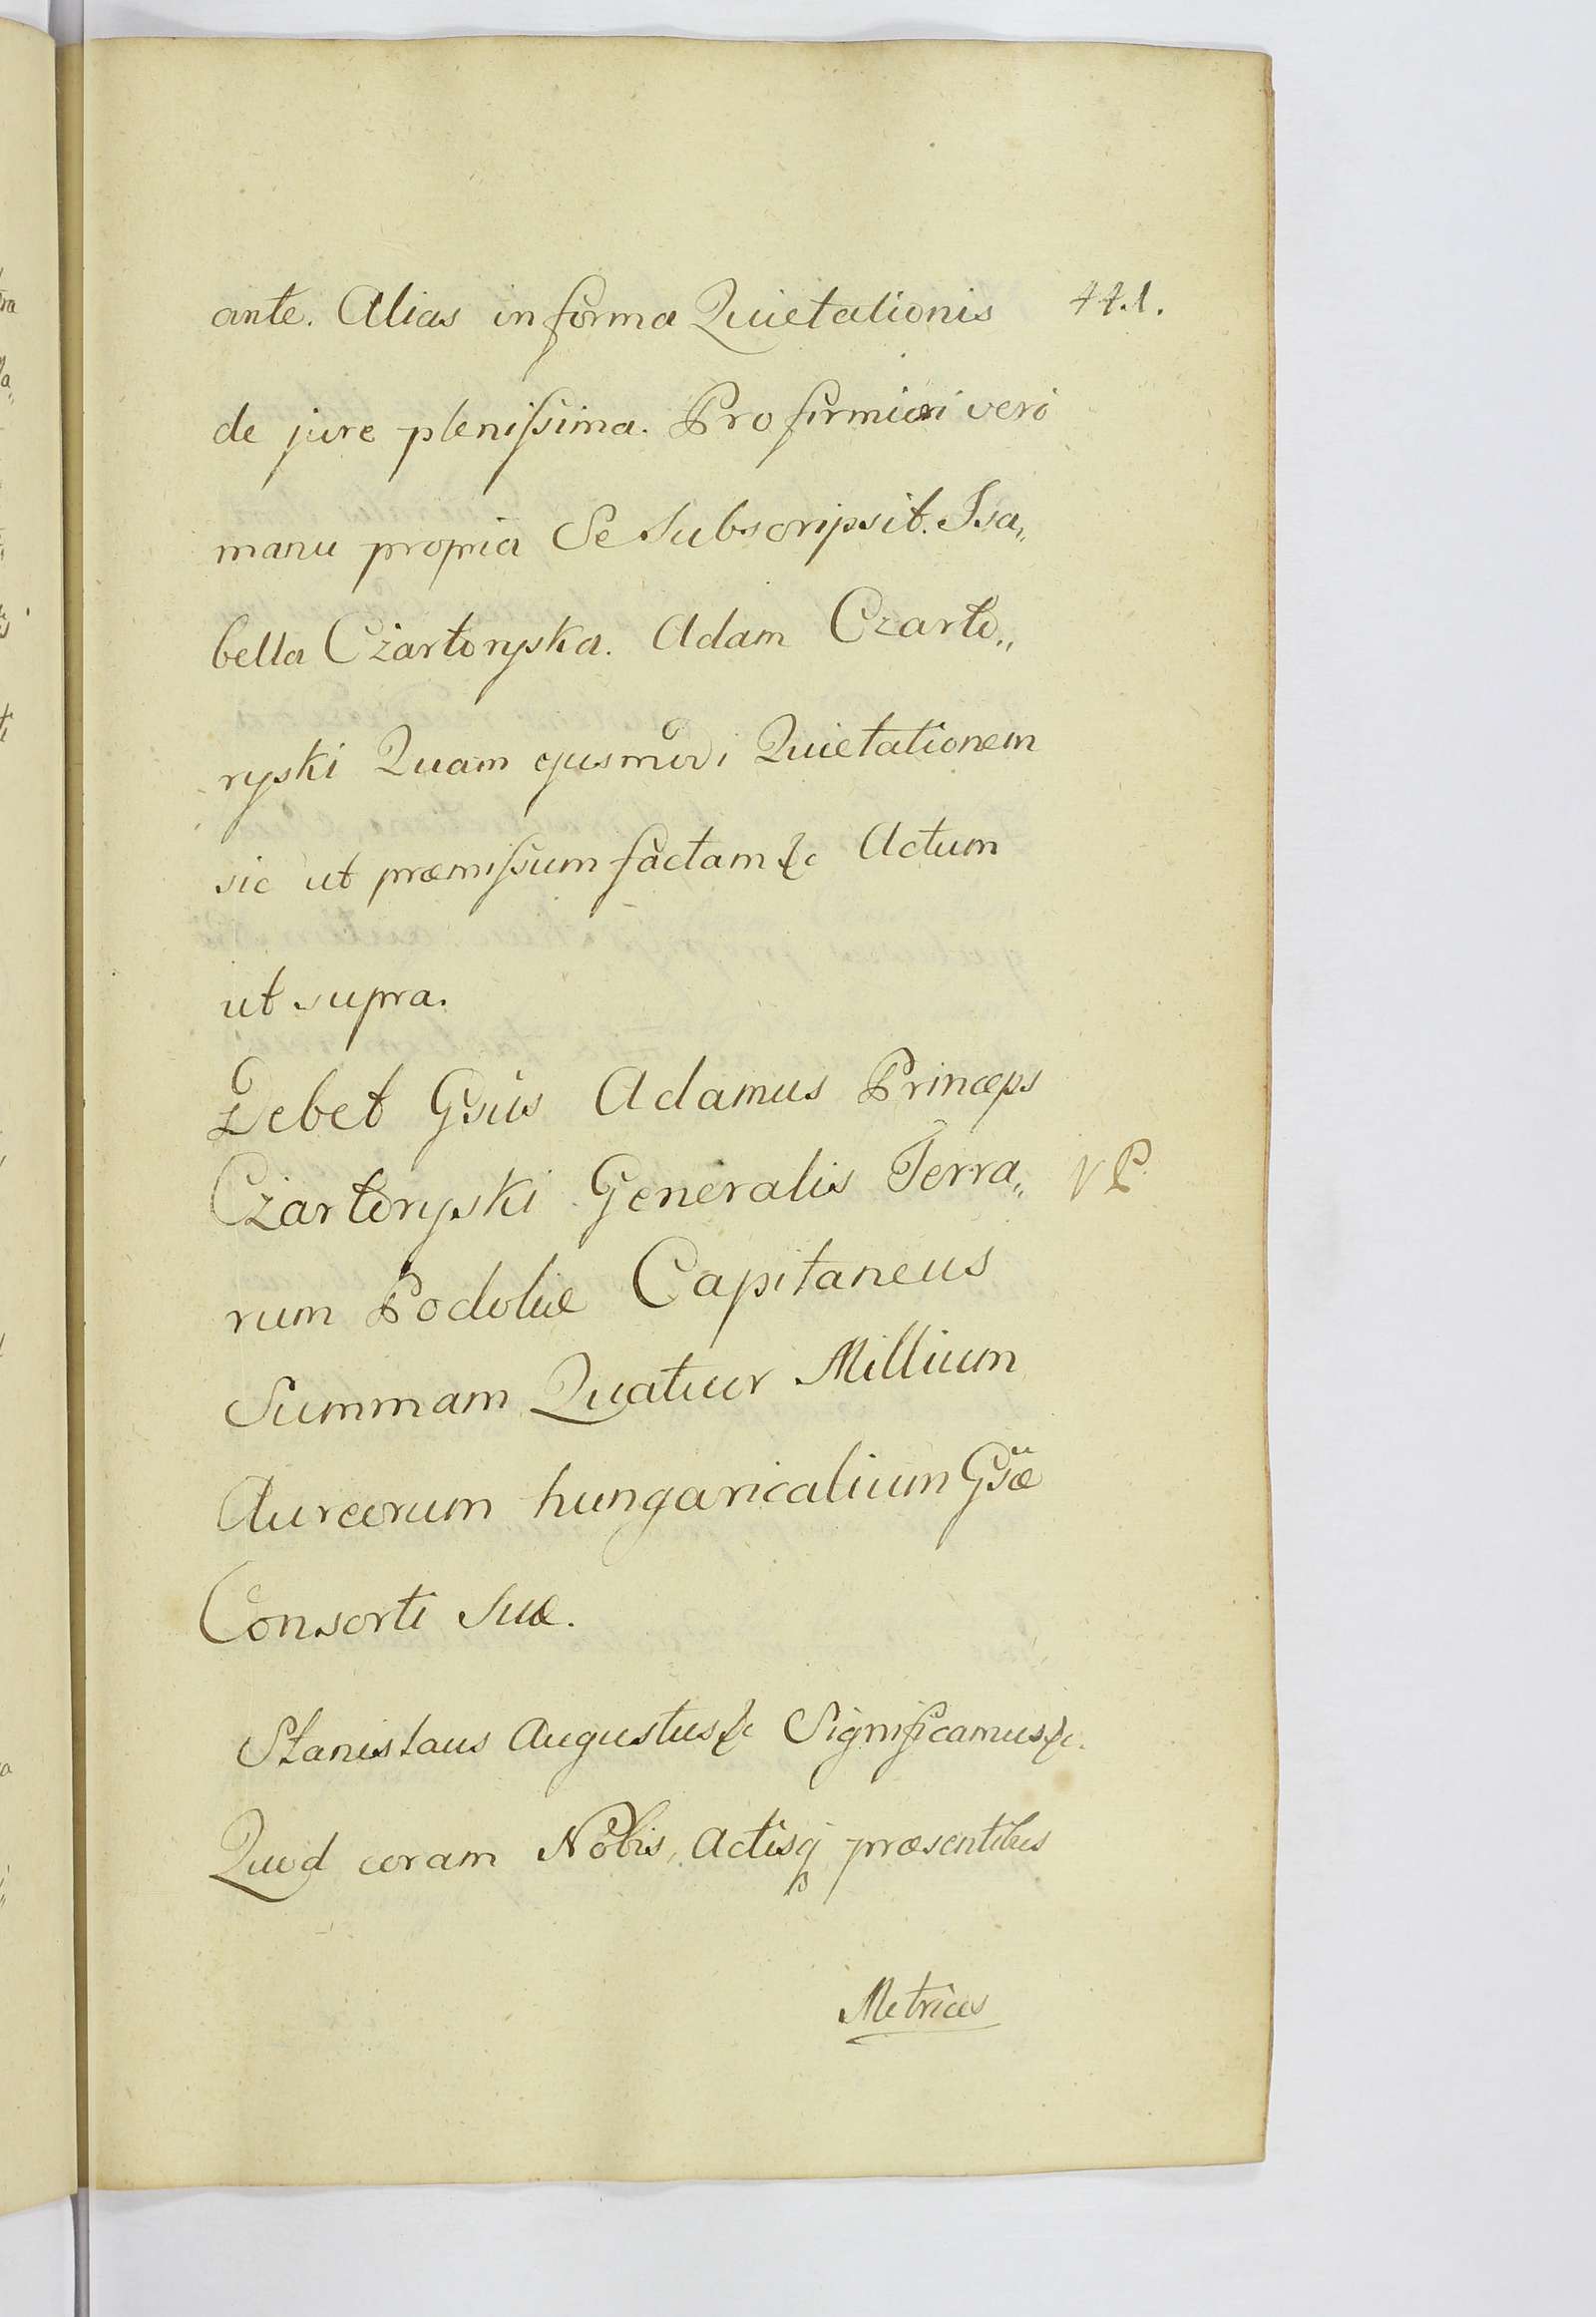 ante. Alias in forma Quietationis 441.
de jure plenissima. Pro firmiori vero
manu propria Se Subscripsit. Isa„
bella Czartoryska. Adam Czarto„
ryski Quam ejusmodi Quietationem
sic ut præmissum factam &c Actum
ut supra.
Debet Gsus Adamus Princeps
Czartoryski Generalis Terra„ VP
rum Podoliæ Capitaneus
Summam Quatuor Millium
Aureorum hungaricalium Gsæ
Consorti Suæ.
Stanislaus Augustus &c Significamus &c.
Quod coram Nobis, Actisq præsentibus
Metrices